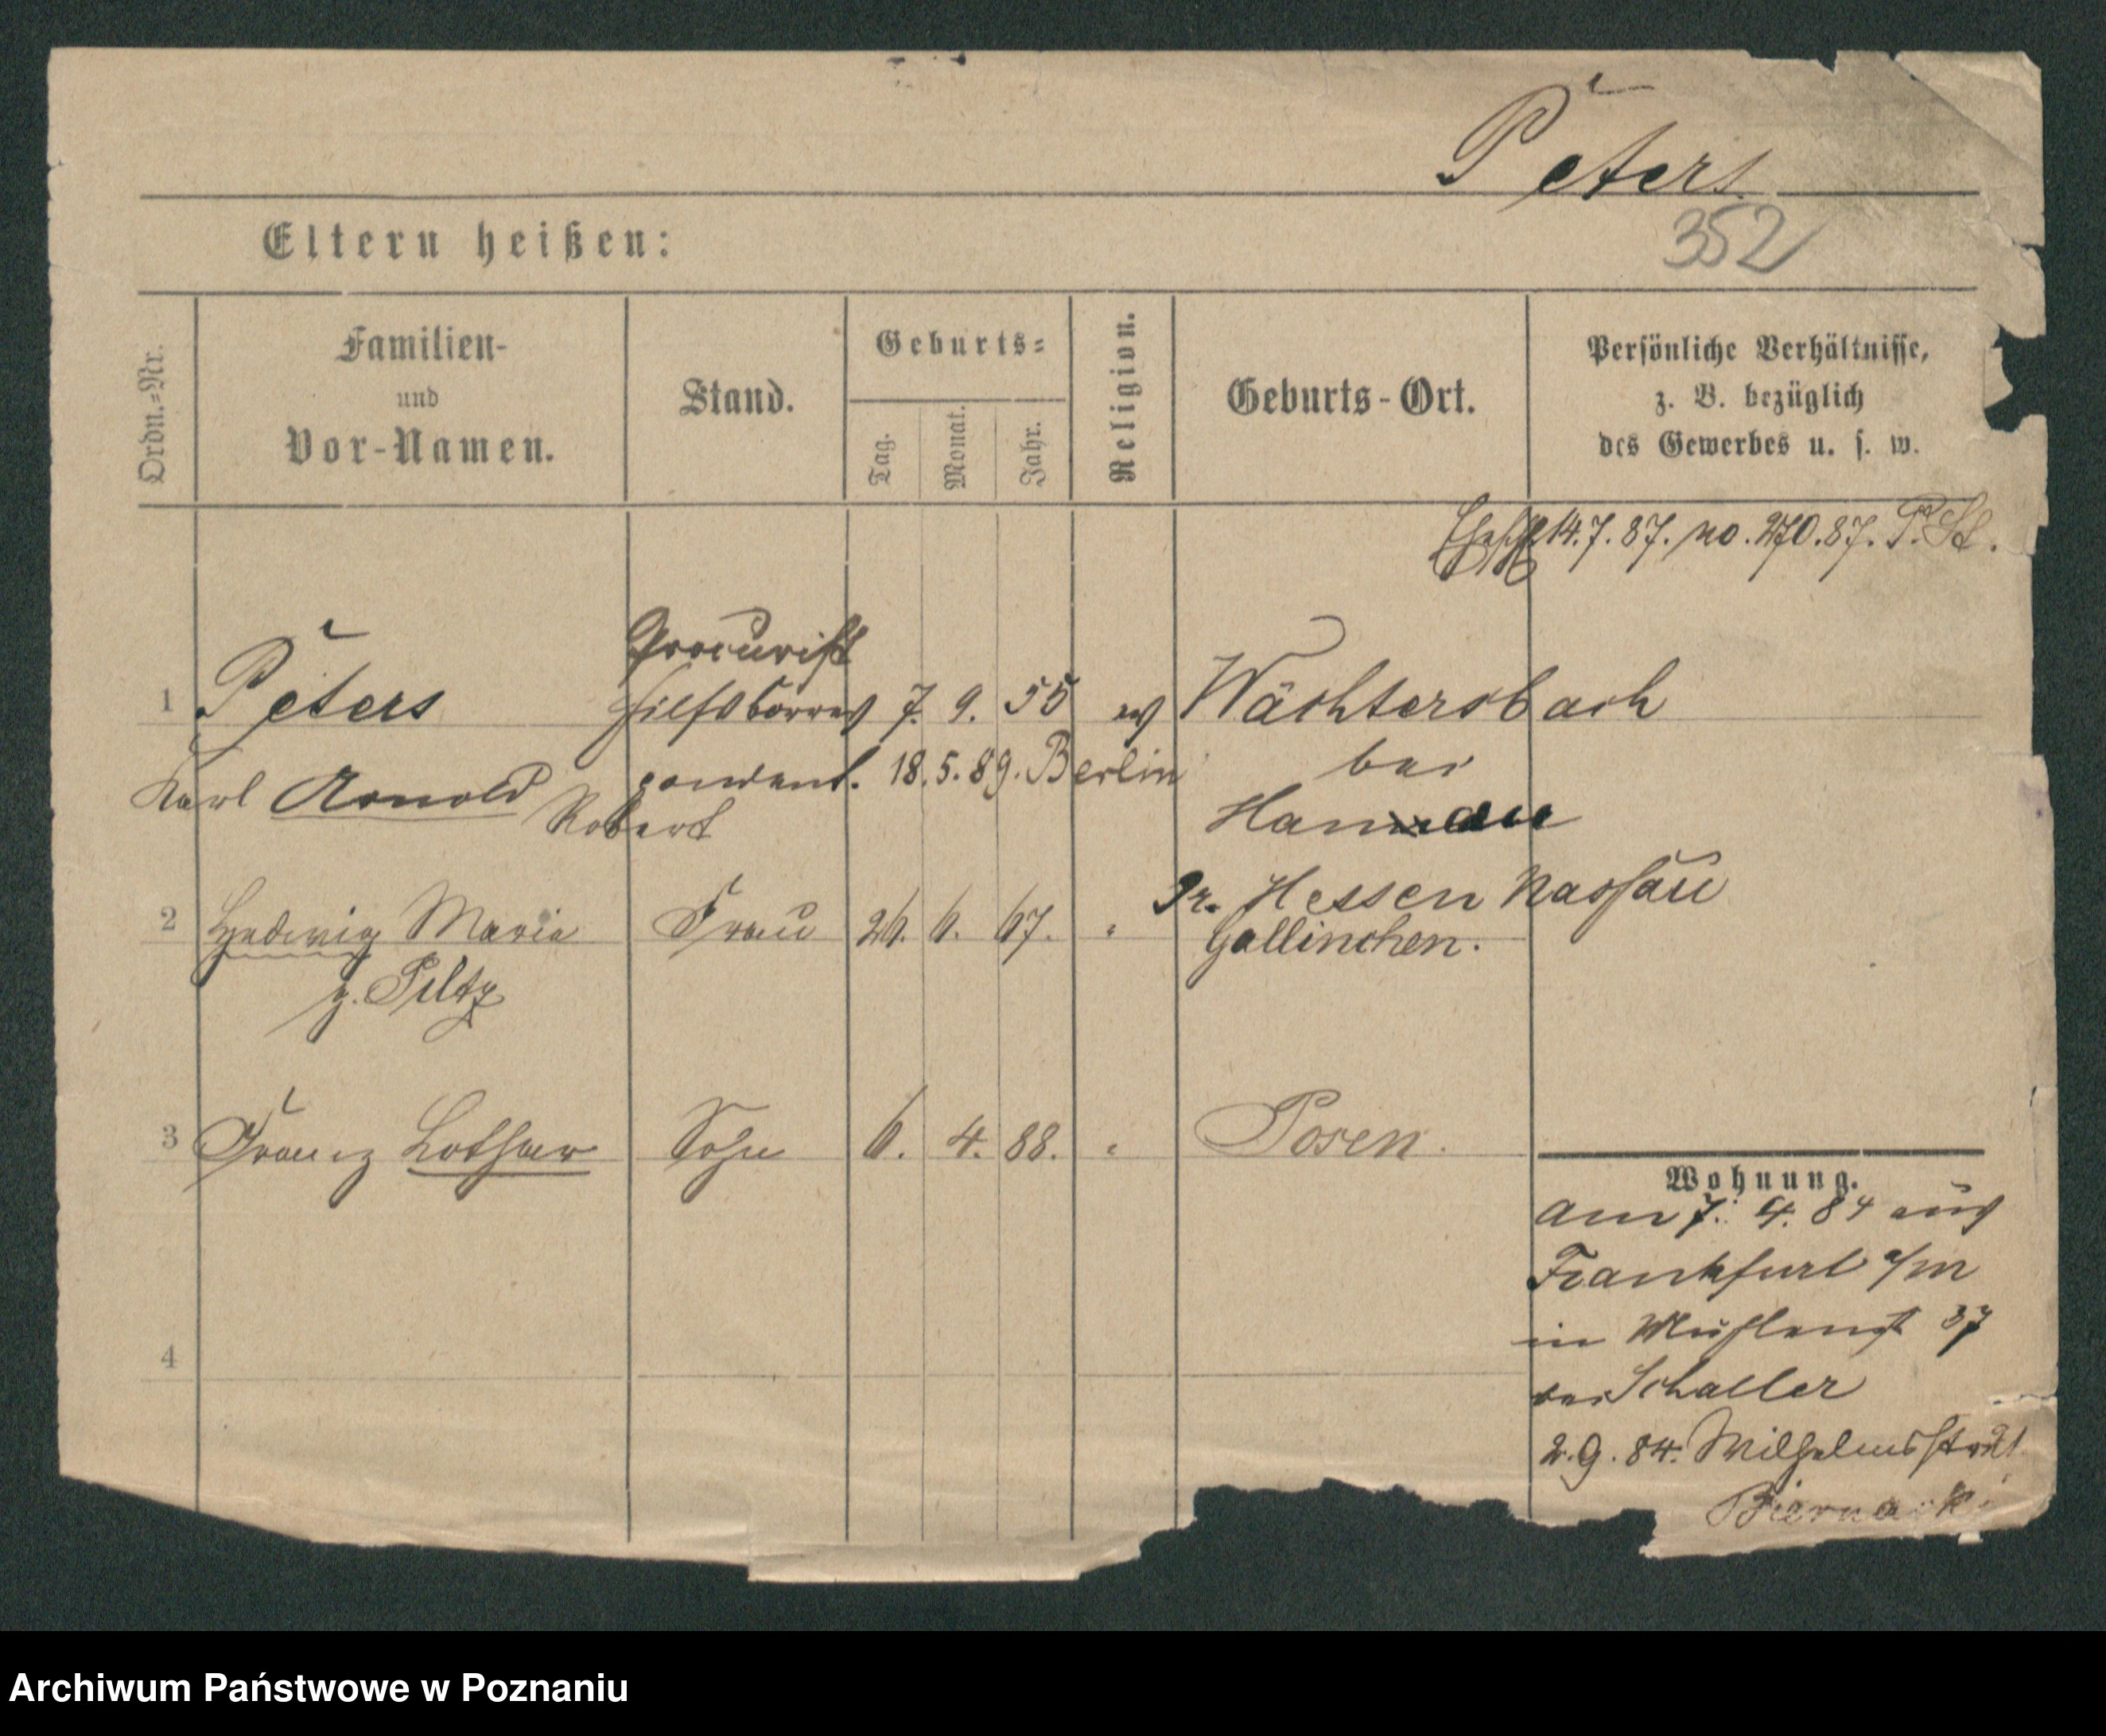 Peters
352
Eltern heißen:
Ordn.-Nr.
Familien-
und
Vor-Namen.
Stand.
Geburts-
Tag.
Monat.
Jahr.
Religion.
Geburts-Ort.
Persönliche Verhältnisse,
z. B. bezüglich
des Gewerbes u. s. w.
14.7.87. no. 270.87. P. St.
Procurist
1 Peters Hilfscorres 7. 9. 55 ev Wächtersbach
Karl Arnold Robert pondent. 18.5.89. Berlin bei
Hanau
Pr. Hessen Nassau
2 Hedwig Maria Frau 26. 6. 67. " Gallinchen.
g. Piltz
3 Franz Lothar Sohn 6. 4. 88. " Posen.
4
Wohnung.
am 7. 4. 84 aus
Frankfurt a/m
in Mühlenst 37
bei Schaller
2.9.84. Wilhelmsstr 21
Biernacki
Archiwum Państwowe w Poznaniu